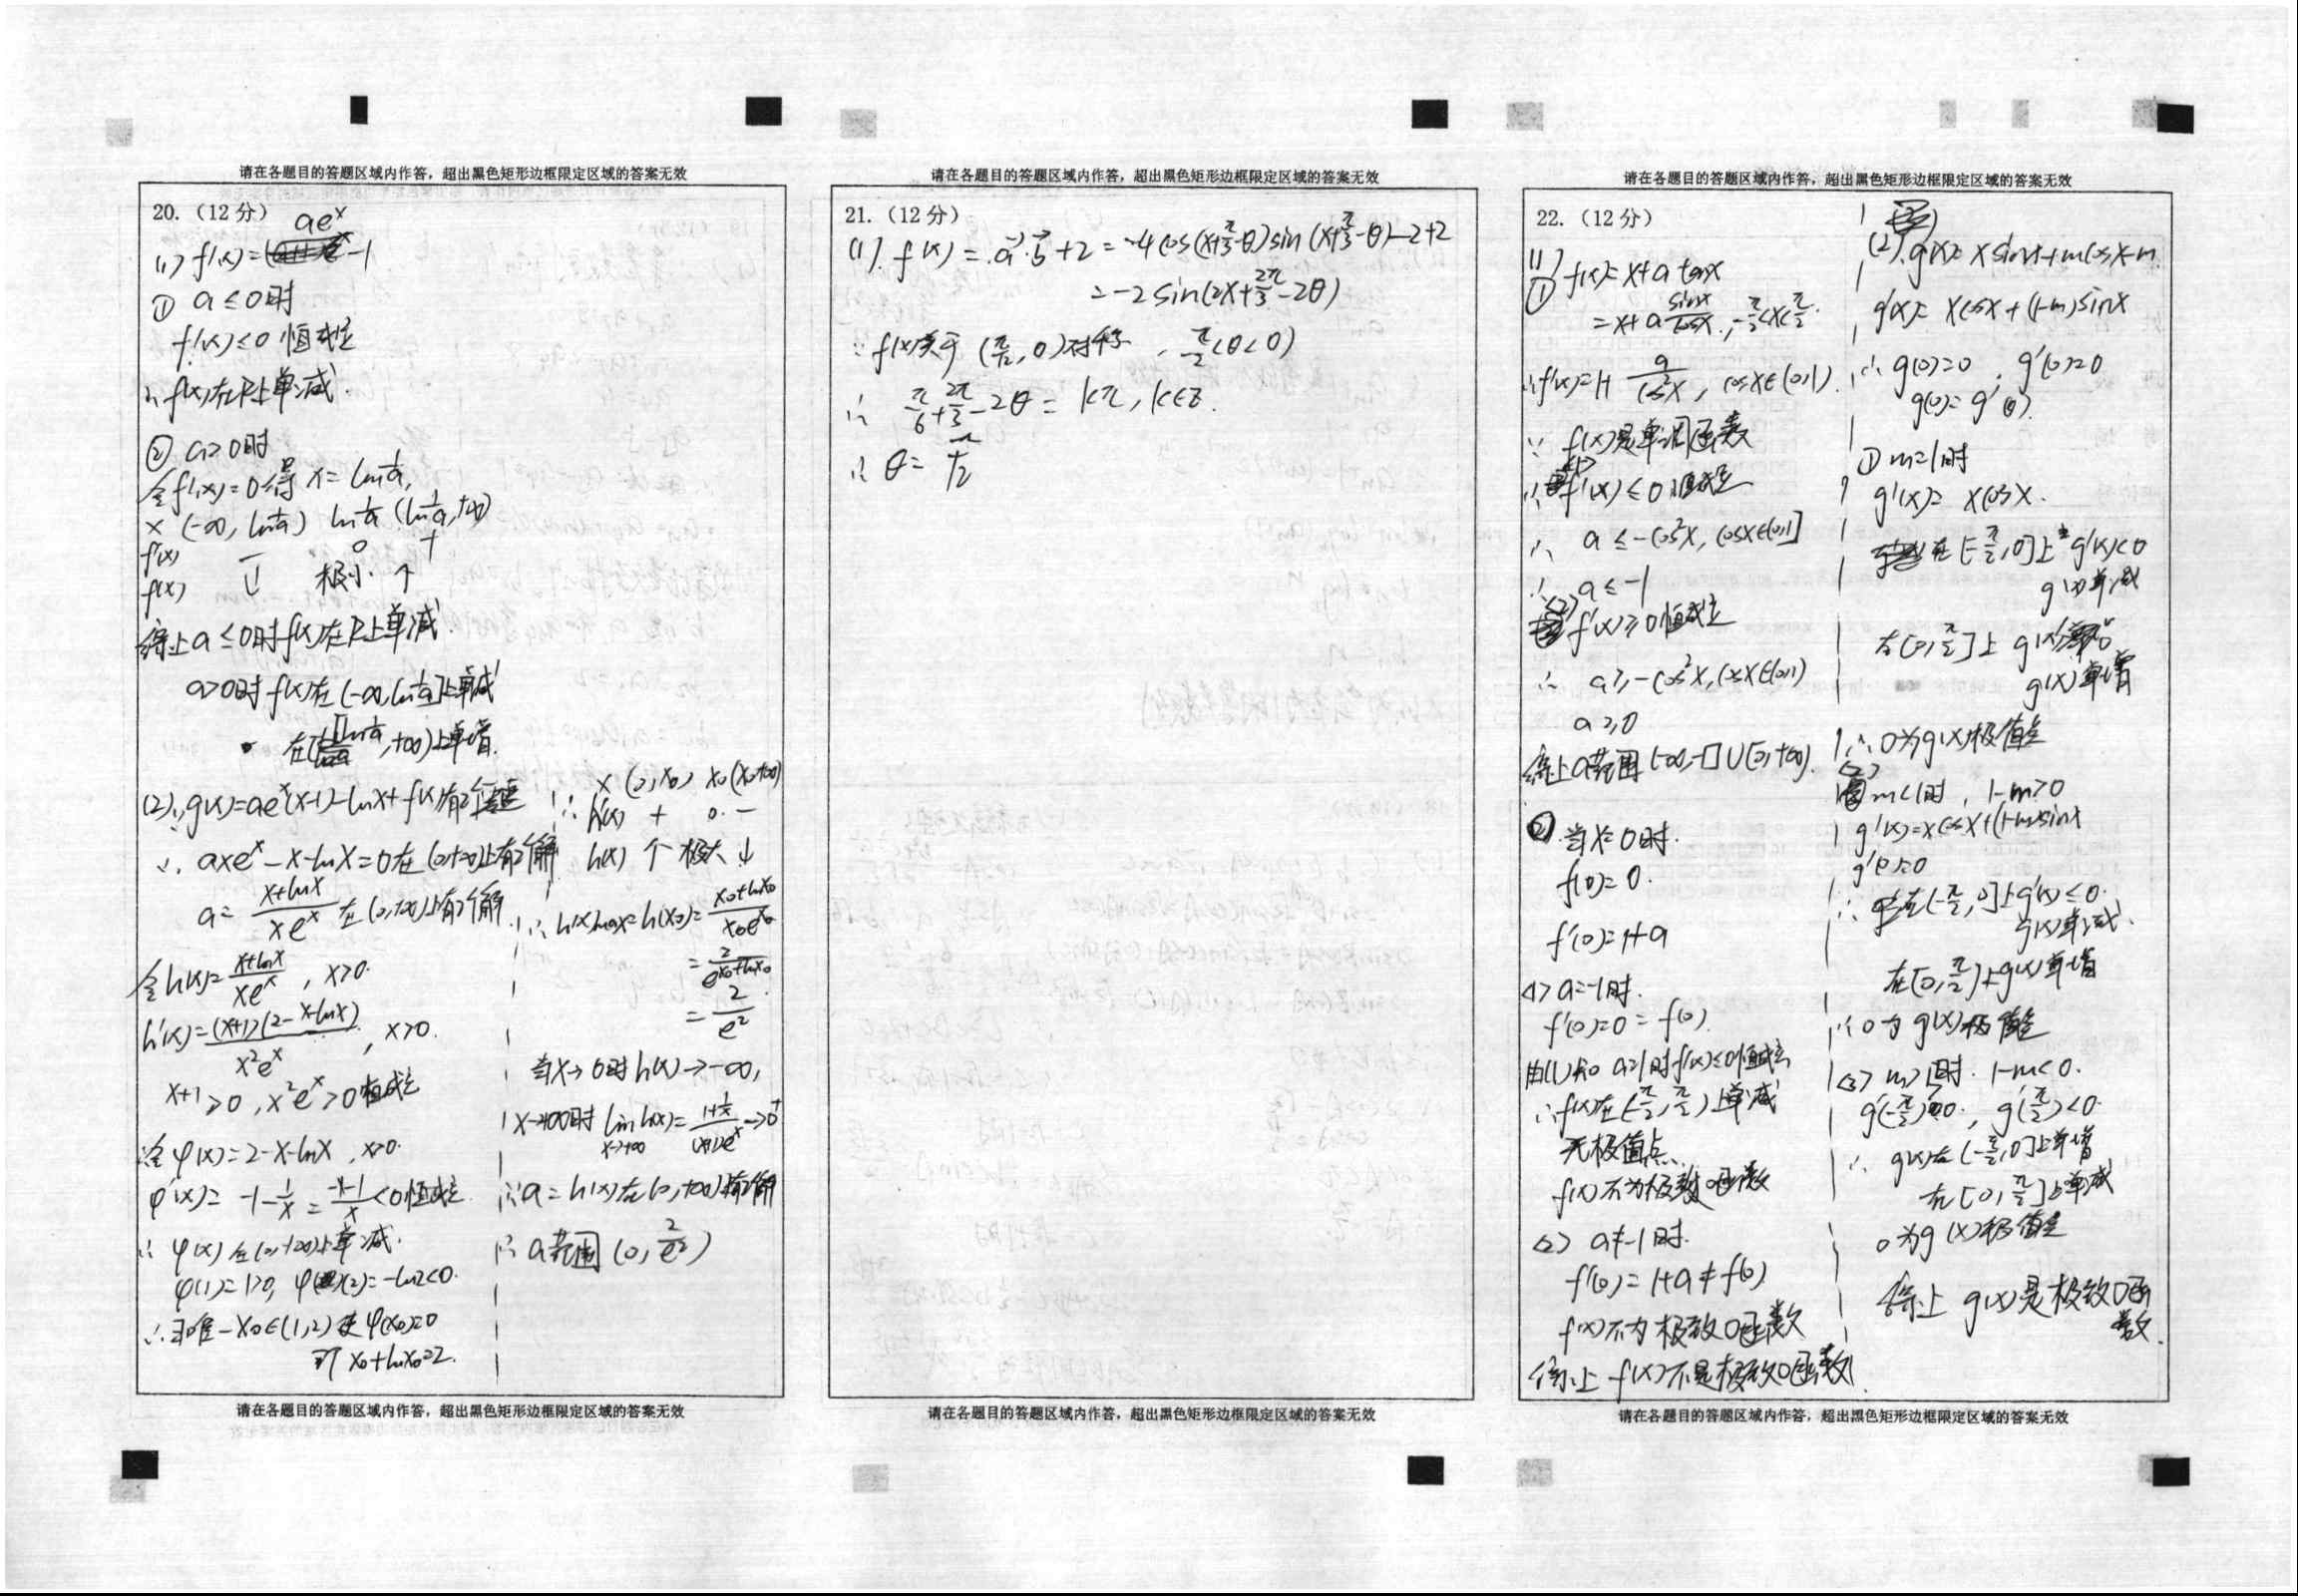 请在各题目的答题区域内作答，超出黑色矩形边框限定区域的答案无效
20.（12分）
(1) f'(x)=ae^x-1
① a≤0时
f'(x)<0恒成立
∴f(x)在R上单减.
② a>0时
令f'(x)=0得 x=ln1/a,
x (-∞, ln1/a) ln1/a (ln1/a,+∞)
f'(x) - 0 +
f(x) ↓ 极小 ↑
综上a≤0时f(x)在R上单减.
a>0时 f(x)在(-∞,ln1/a]上单减
在[ln1/a,+∞)上单增.
(2)∵g(x)=ae^x(x-1)-lnx+f(x)有2个
∴ axe^x-x-lnx=0在(0,+∞)上有2个解
a= (x+lnx)/(xe^x) 在(0,+∞)上有2个解
令h(x)=(x+lnx)/(xe^x), x>0.
h'(x)=(x+1)(2-x-lnx)/(x²e^x), x>0.
x+1>0, x²e^x>0恒成立
令φ(x)=2-x-lnx, x>0.
φ'(x)= -1-1/x = (-x-1)/x<0恒成立
∴ φ(x)在(0,+∞)上单减.
φ(1)=1>0, φ(2)=-ln2<0.
∴∃唯一x₀∈(1,2)使φ(x₀)=0
即 x₀+lnx₀=2.
∴ x (0,x₀) x₀ (x₀,+∞)
h'(x) + 0 -
h(x) ↑ 极大 ↓
∴h(x)max=h(x₀)=(x₀+lnx₀)/(x₀e^x₀)
=2/e^(x₀+lnx₀)
=2/e².
当x→0时h(x)→-∞,
x→+∞时 lim x→+∞ h(x)=(1+1/x)/((x+1)e^x)→0⁺
∴a=h(x)在(0,+∞)有2个解
∴a范围(0, 2/e²)
请在各题目的答题区域内作答，超出黑色矩形边框限定区域的答案无效
请在各题目的答题区域内作答，超出黑色矩形边框限定区域的答案无效
21.（12分）
(1). f(x)=a⃗·b⃗+2=-4cos(x+π/3-θ)sin(x+π/3-θ)-2+2
=-2sin(2x+2π/3-2θ)
∵f(x)关于(π/12,0)对称, π/2<θ<0)
∴ π/6+2π/3-2θ=kπ, k∈Z.
∴ θ=-π/12
请在各题目的答题区域内作答，超出黑色矩形边框限定区域的答案无效
请在各题目的答题区域内作答，超出黑色矩形边框限定区域的答案无效
22.（12分）
(1)
① f(x)=x+a tanx
=x+a sinx/cosx, -π/2<x<π/2.
∴f'(x)=1+a/cos²x, cosx∈(0,1).
∵ f(x)是单调函数
∴<1>f'(x)≤0恒成立
∴ a≤-cos²x, cosx∈(0,1]
∴ a≤-1
<2> f'(x)≥0恒成立
∴ a≥-cos²x, cosx∈(0,1)
a≥0
综上a范围(-∞,-1]∪[0,+∞).
②.当x=0时.
f(0)=0.
f'(0)=1+a
<1> a=-1时.
f'(0)=0=f(0).
由(1)知 a=-1时f'(x)≤0恒成立
∴f(x)在(-π/2,π/2)上单减
无极值点.
f(x)不为极致0函数
<2> a≠-1时.
f'(0)=1+a≠f(0)
f(x)不为极致0函数
综上 f(x)不是极致0函数
(2).g(x)=xsinx+mcosx-m.
g'(x)=xcosx+(1-m)sinx
∴ g(0)=0, g'(0)=0
g(0)=g'(0).
① m=1时
g'(x)=xcosx.
在[-π/2,0]上 g'(x)<0
g(x)单减
在[0,π/2]上 g'(x)>0
g(x)单增
∴0为g(x)极值点
<2> m<1时, 1-m>0
g'(x)=xcosx+(1-m)sinx
g'(0)=0
∴ 在(-π/2,0]上g'(x)≤0.
g(x)单减.
在[0,π/2)上g(x)单增
∴0为g(x)极值点
<3> m>1时. 1-m<0.
g'(-π/2)>0, g'(π/2)<0.
∴ g(x)在(-π/2,0]上单增
在[0,π/2]上单减
0为g(x)极值点
综上 g(x)是极致0函数.
请在各题目的答题区域内作答，超出黑色矩形边框限定区域的答案无效